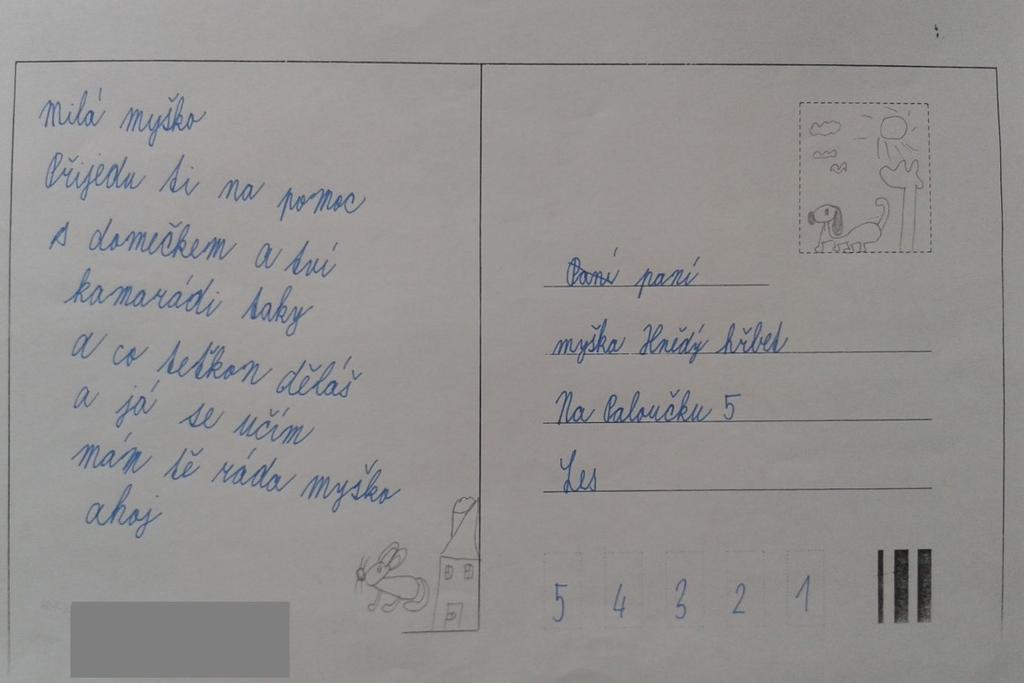 Milá myško
Přijedu ti na pomoc
s domečkem a tví
kamarádi taky
a co teťkon děláš
a já se učím
mám tě ráda myško
ahoj
Paní paní
myška Hnědý hřbet
Na Paloučku 5
Les
5 4 3 2 1